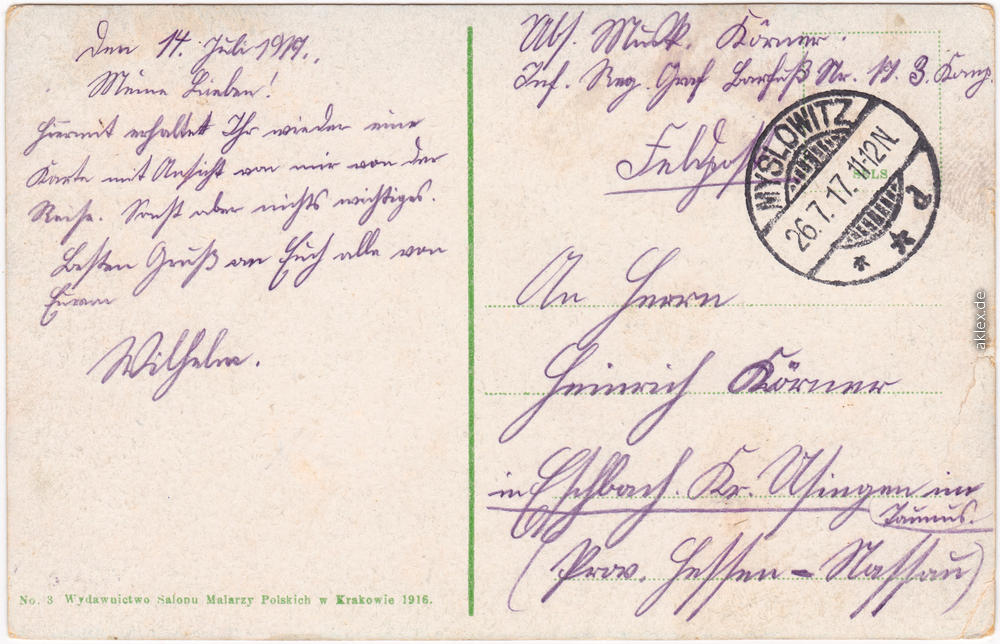 Den 14. Juli 1917.
Meine Lieben!
Hiermit erhaltet Ihr wieder eine
Karte mit Ansicht von mir von der
Reise. Sonst aber nichts wichtiges.
Besten Gruß an Euch alle von
Eurem
Wilhelm.
No. 3 Wydawnictwo Salonu Malarzy Polskich w Krakowie 1916.
Abs. Musk. Körner.
Inf. Reg. Graf Barfuß Nr. 17. 3. Komp.
Feldpost
S.M.S.
MYSLOWITZ
26.7.17.11-12N.
* * d
An Herrn
Heinrich Körner
in Eschbach. Kr. Usingen im
Taunus.
(Prov. Hessen-Nassau)
aklex.de